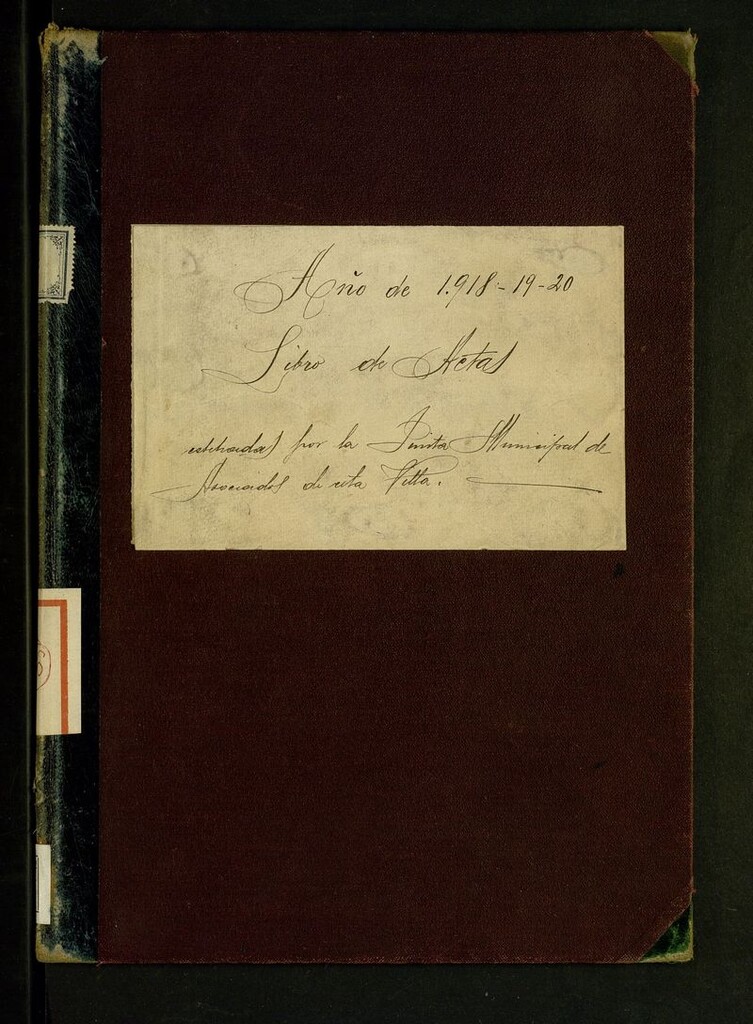 Año de 1.918-19-20
Libro de Actas
celebradas por la Junta Municipal de
Asociados de esta Villa.